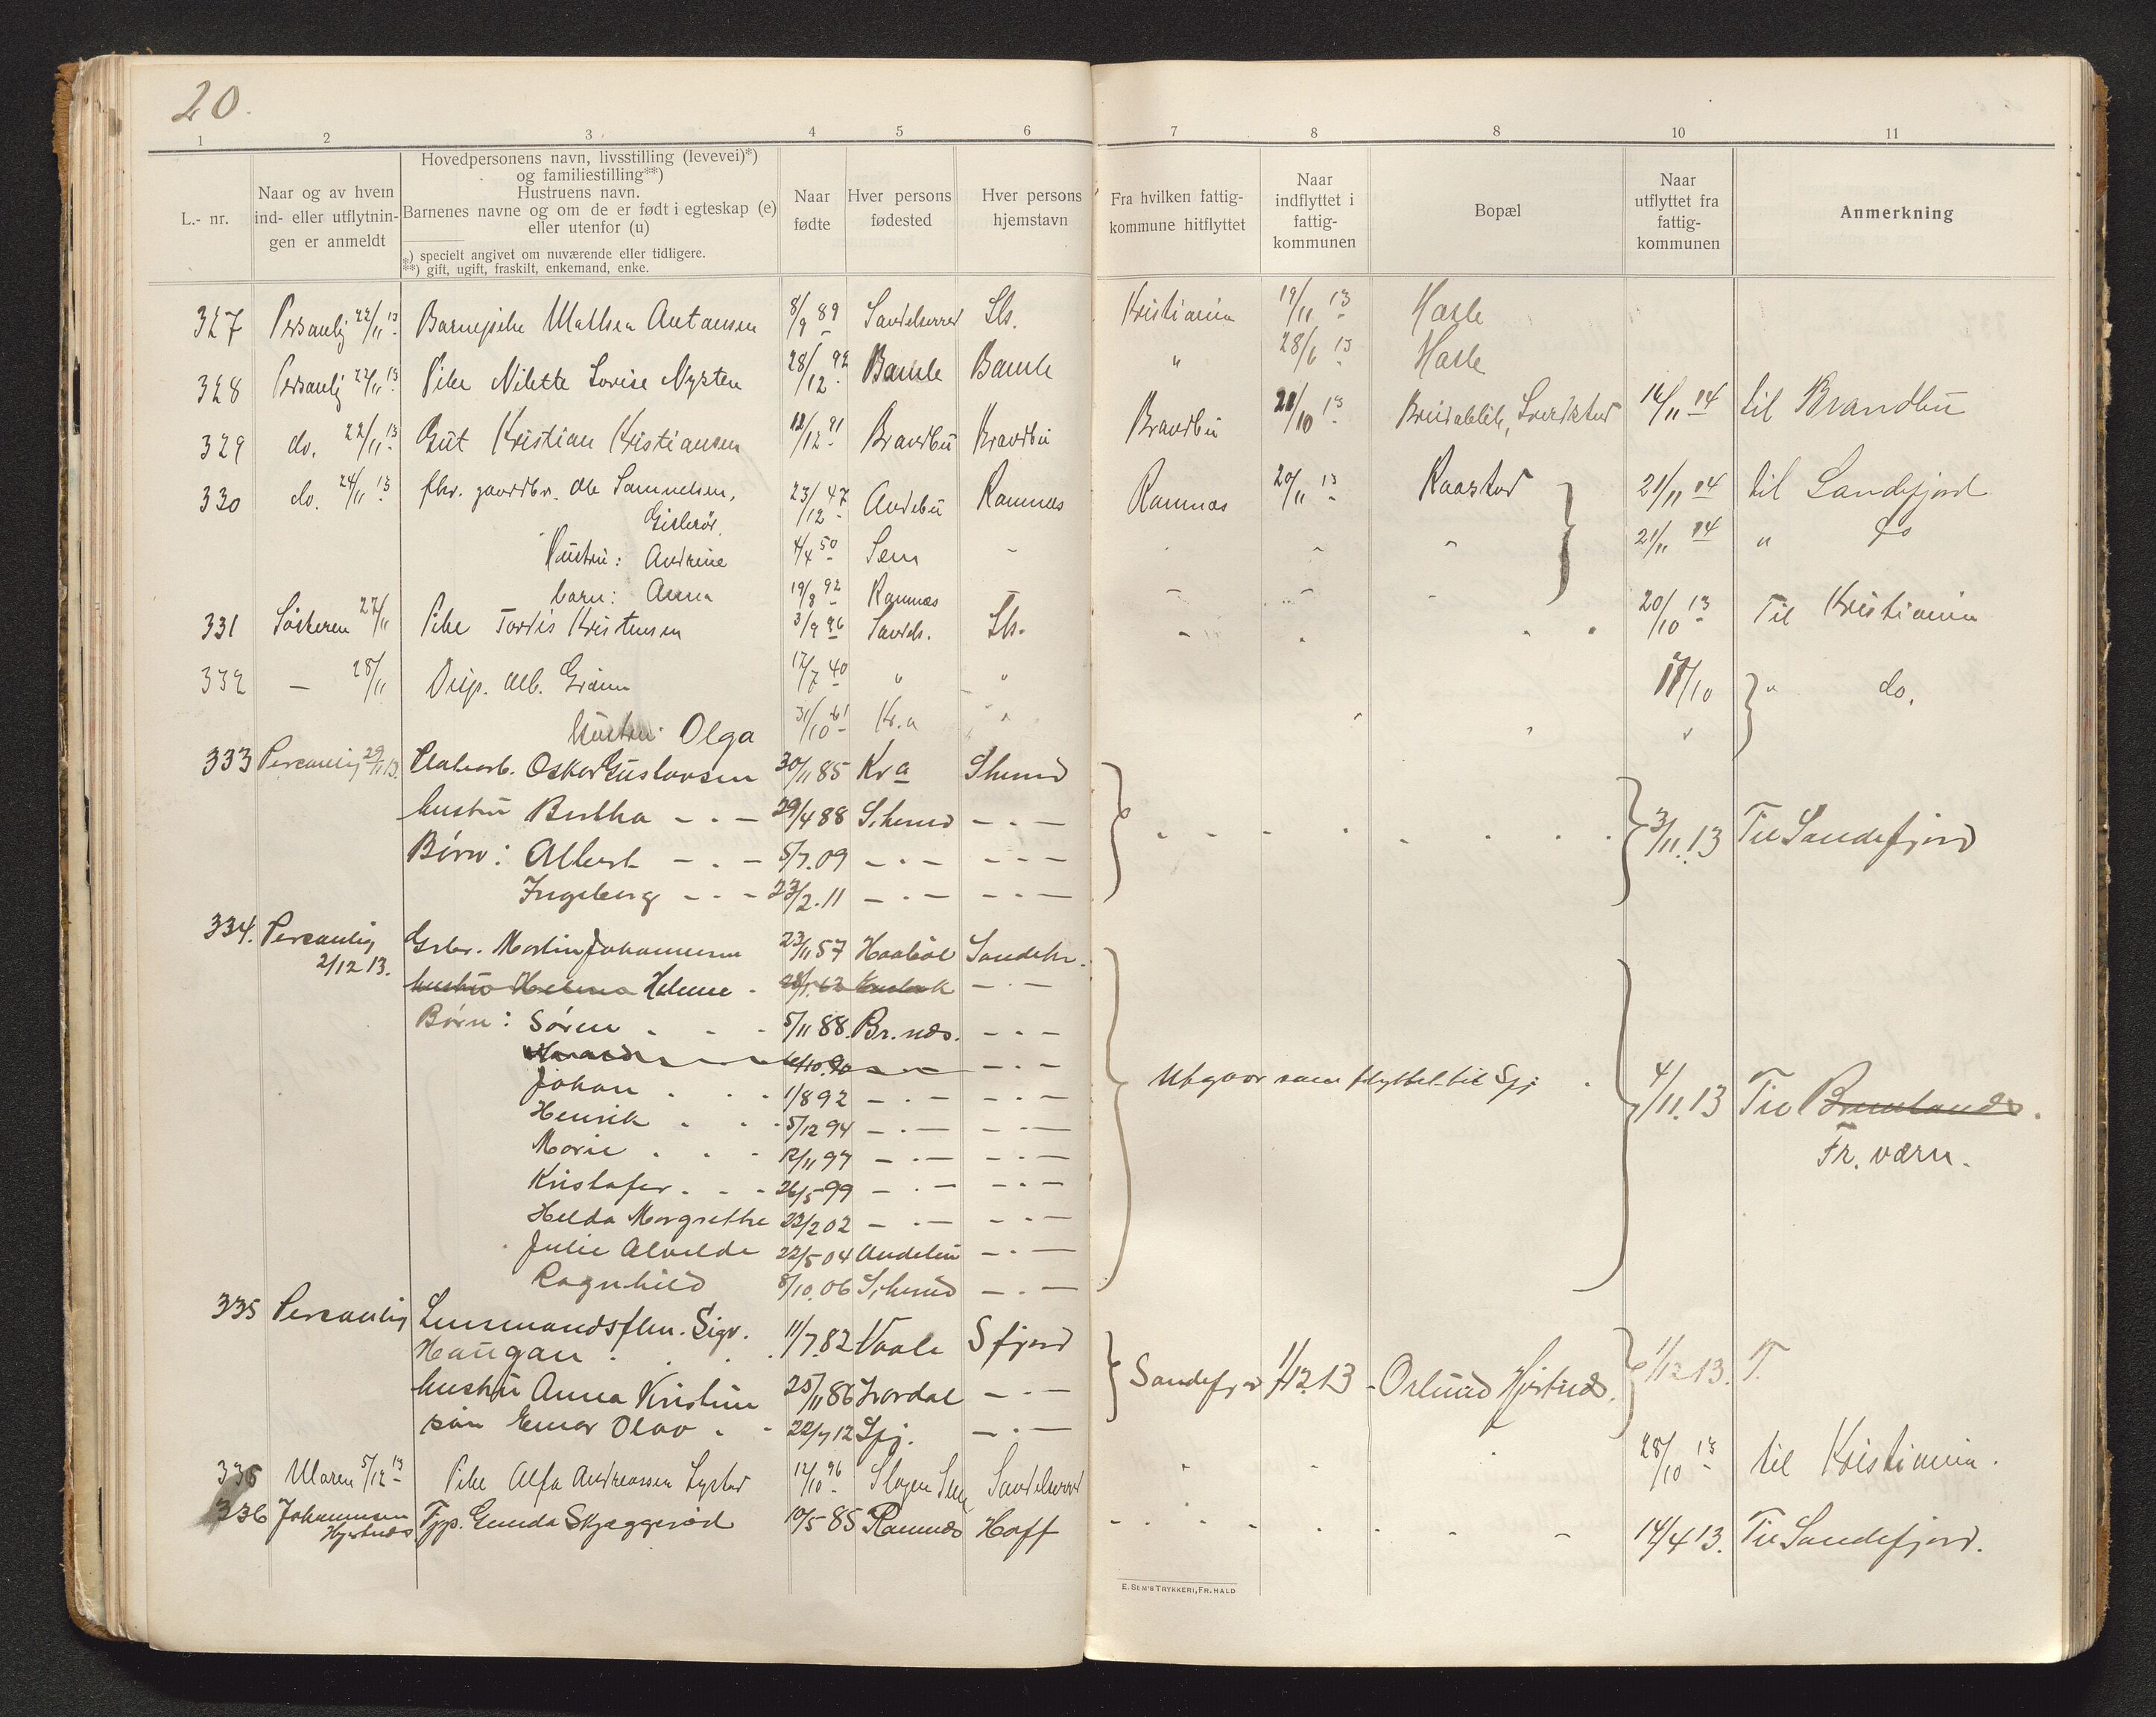 20.
1 2 3 4 5 6 7 8 8 10 11
L.- nr.
Naar og av hvem
ind- eller utflytnin-
gen er anmeldt
Hovedpersonens navn, livsstilling (levevei)*)
og familiestilling**)
Hustruens navn.
Barnenes navne og om de er født i egteskap (e)
eller utenfor (u)
*) specielt angivet om nuværende eller tidligere.
**) gift, ugift, fraskilt, enkemand, enke.
Naar
fødte
Hver persons
fødested
Hver persons
hjemstavn
Fra hvilken fattig-
kommune hitflyttet
Naar
indflyttet i
fattig-
kommunen
Bopæl
Naar
utflyttet fra
fattig-
kommunen
Anmerkning
327 Personlig 22/11 13 Barnepike Antonsen 8/9 89 Sandeherred Sh. Kristiania 19/11 13 Hasle
328 Personlig 22/11 13 Pike Nilette Lovise 28/12 92 Bamle Bamle " 28/6 13 Hasle
329 do. 22/11 13 Gut Kristian Kristiansen 12/12 91 Brandbu Brandbu Brandbu 21/10 13 Breidablik, 16/11 14 til Brandbu
330 do. 24/11 13 fhv. gaardbr. Ole Samuelsen, 23/12 47 Andebu Ramnes Ramnes 20/11 13 Raastad 21/11 14 til Sandefjord
Gislerød
Hustru: Andrine 4/4 50 Sem - 21/11 14 " do
barn: Anna 19/8 92 Ramnes
331 27/11 Pike Tordis Kristensen 3/9 96 Sandeh. Sh. 20/10 13 Til Kristiania
332 — 28/11 Disp. Alb. Gram 17/7 40 " " 17/10 " do.
Hustru: Olga 31/10 61 Kr.a "
333 Personlig 29/11 13. Oskar Gustavsen 30/11 85 Kra
hustru Bertha - . - 29/4 88 — . —
Børn: Albert — . — 5/7.09 — . — — . — 3/11.13 Til Sandefjord
Ingeborg — . — 23/2.11 — . — — . —
334. Personlig
2/12 13.
Grbr. Martin Johannesen 23/11 57 Sandehr.
hustru Helene Helene — . —
Børn: Søren 5/11 88. Br.næs. — . —
4/10.90 — . — — . —
Johan 1/8 92 — . — — . — Utgaar som flyttet til Sfj 4/11.13 Til Brunlanes.
Henrik 5/12 94 — . — — . —
Marie 12/11 97 — . — — . — Fr. værn.
Kristofer 26/5 99 — . — — . —
Helda Margrethe 22/2 02 — . — — . —
Julie Alvilde 22/5 04 Andebu — . —
Ragnhild 8/10.06 — . —
335 Personlig Lensmandsflm. Sigv.
Haugan 11/7.82 Vaale Sfjord
hustru Anna Kristine 25/11 86 — . — Sandefjord 1/12 13 Hjertnæs. 1/12 13. T.
søn Einar Olav 22/7 12 Sfj. — . —
335 Maren 5/12 13 Pike Alfa Andreassen 12/10 96 Slagen Sem Sandeherred 28/10 13 til Kristiania.
336 Johannesen
Hjertnæs
Tjp. Gunda Skjeggerød 10/5 85 Ramnes Hoff 14/4 13. Til Sandefjord.
E. SEM'S TRYKKERI, FR.HALD